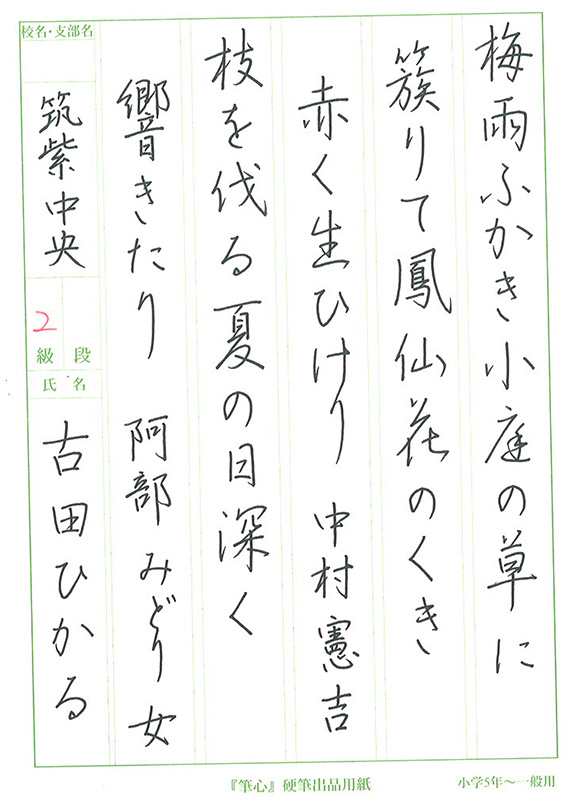 梅雨ふかき小庭の草に
簇りて鳳仙花のくき
赤く生ひけり 中村憲吉
枝を伐る夏の日深く
響きたり 阿部みどり女
校名・支部名
筑紫中央
2
級 段
氏名
古田ひかる
『筆心』硬筆出品用紙
小学5年～一般用